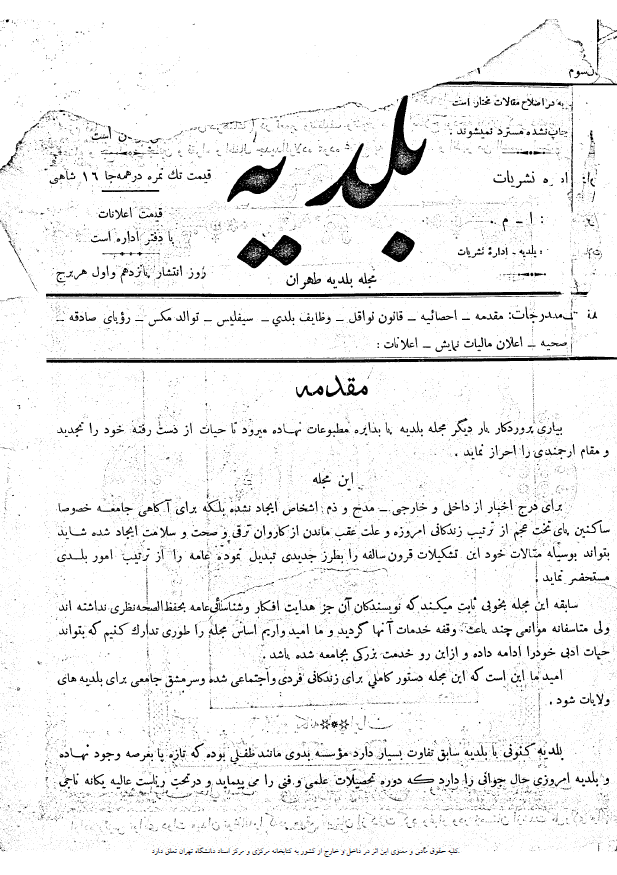 سوم
۱
به در اصلاح مقالات مختار است
چاپ نشده مسترد نمیشوند .
است
قیمت تك نمره در همه جا ۱۶ شاهی
اداره نشریات
قیمت اعلانات
ا ـ م .
با دفتر اداره است
بلدیه ـ ادارهٔ نشریات
روز انتشار پانزدهم و اول هر برج
بلدیه
مجله بلدیه طهران
مندرجات: مقدمه ـ احصائیه ـ قانون نواقل ـ وظایف بلدی ـ سیفلیس ـ توالد مکس ـ رؤیای صادقه ـ
صحیه ـ اعلان مالیات نمایش ـ اعلانات :
مقدمه
بیاری پروردکار بار دیگر مجله بلدیه پا بدایره مطبوعات نهاده میرود تا حیات از دست رفته خود را تجدید
و مقام ارجمندی را احراز نماید .
این مجله
برای درج اخبار از داخلی و خارجی ـ مدح و ذم اشخاص ایجاد نشده بلکه برای آکاهی جامعه خصوصا
ساکنین پای تخت عجم از ترتیب زندکانی امروزه و علت عقب ماندن از کاروان ترقی و صحت و سلامت ایجاد شده شاید
بتواند بوسیله مقالات خود این تشکیلات قرون سالفه را بطرز جدیدی تبدیل نموده عامه را از ترتیب امور بلدی
مستحضر نماید .
سابقه این مجله بخوبی ثابت میکند که نویسندکان آن جز هدایت افکار و شناسائی عامه بحفظ الصحه نظری نداشته اند
ولی متاسفانه موانعی چند باعث وقفه خدمات آنها گردید و ما امید واریم اساس مجله را طوری تدارك کنیم که بتواند
حیات ادبی خود را ادامه داده و از این رو خدمت بزرکی بجامعه شده باشد .
امید ما این است که این مجله دستور کاملی برای زندکانی فردی و اجتماعی شده و سرمشق جامعی برای بلدیه های
ولایات شود .
***
بلدیه کنونی با بلدیه سابق تفاوت بسیار دارد مؤسسه بدوی مانند طفلی بوده که تازه پا بعرصه وجود نهاده
و بلدیه امروزی حال جوانی را دارد که دوره تحصیلات علمی و فنی را می پیماید و در تحت ریاست عالیه یکانه ناجی
کلیه حقوق مادی و معنوی این اثر در داخل و خارج از کشور به کتابخانه مرکزی و مرکز اسناد دانشگاه تهران تعلق دارد.